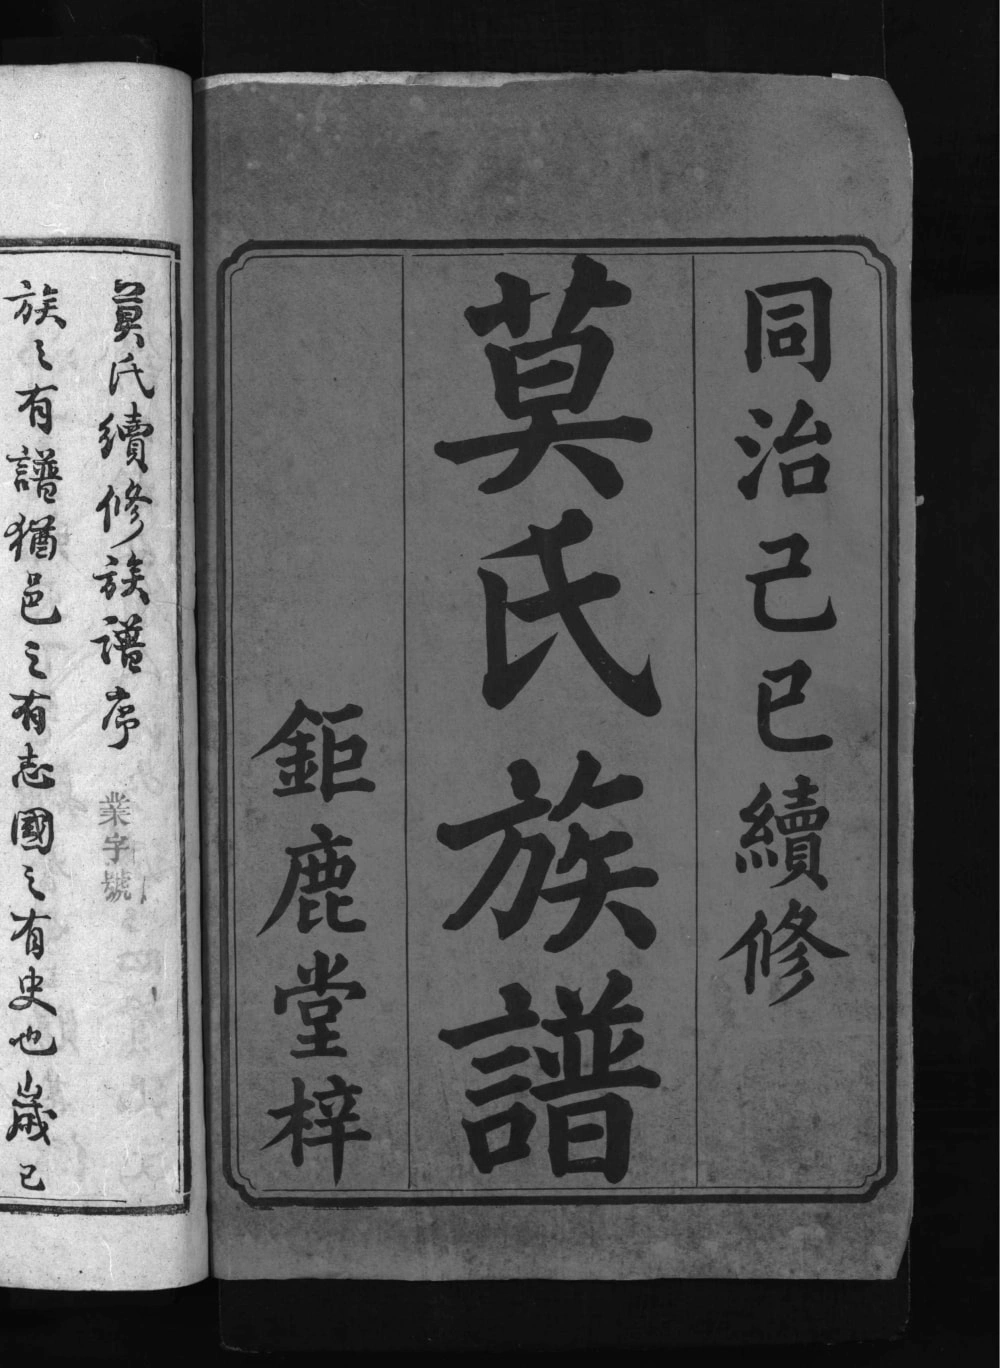 同治己巳續修
莫氏族譜
鉅鹿堂梓
莫氏續修族譜序 業字號
族之有譜猶邑之有志國之有史也歲己